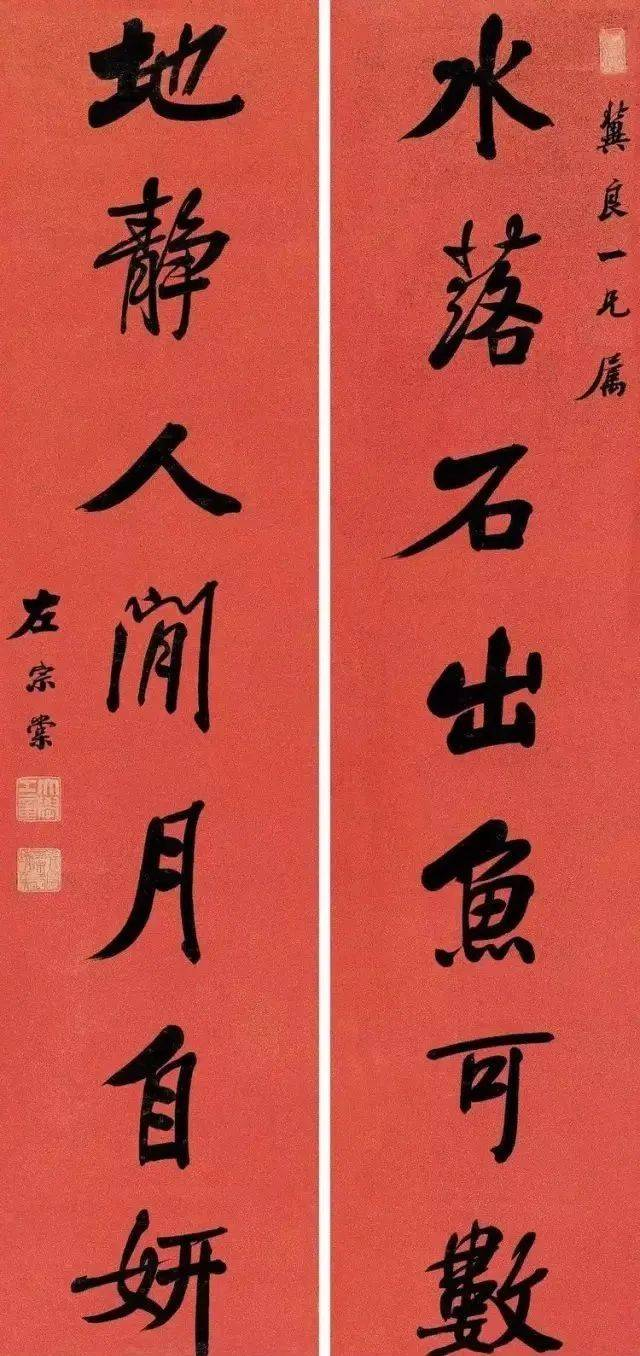 冀良一兄属
水落石出魚可數
地靜人閒月自妍
左宗棠